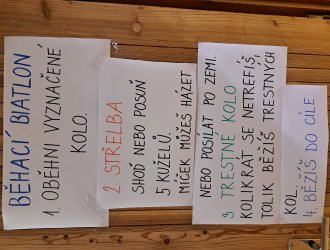 BĚHACÍ BIATLON
1. OBĚHNI VYZNAČENÉ
KOLO.
2. STŘELBA
SHOĎ NEBO POSUŇ
5 KUŽELŮ.
MÍČEK MŮŽEŠ HÁZET
NEBO POSÍLAT PO ZEMI.
3. TRESTNÉ KOLO
KOLIKRÁT SE NETREFÍŠ,
TOLIK BĚŽÍŠ TRESTNÝCH
KOL.
4. BĚŽÍŠ DO CÍLE.